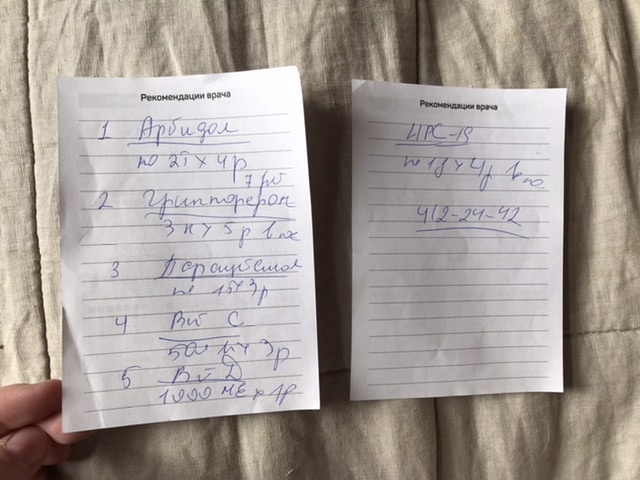 Рекомендации врача
1 Арбидол
по 2т х 4р
7 дн
2 Гриппферон
3 к х 5р в нос
3 Парацетамол
по 1т х 3р
4 Вит С
х 3р
5 Вит Д
1000 МЕ х 1р
Рекомендации врача
ИРС-19
по 1д х 4р в
412-24-42